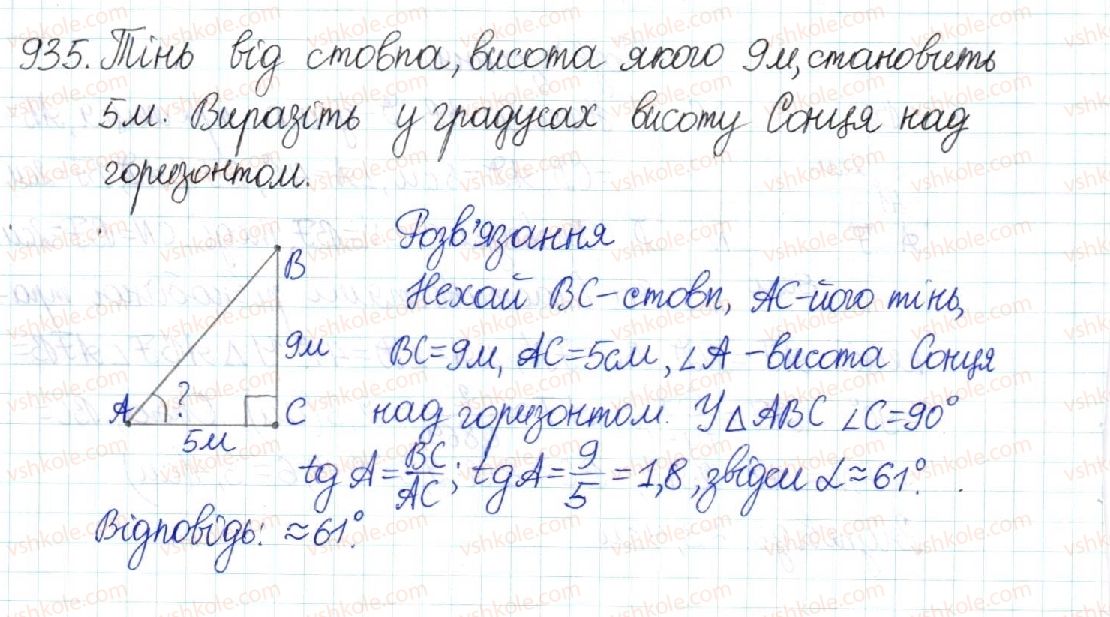 935. Тінь від стовпа, висота якого 9м, становить
5м. Виразіть у градусах висоту Сонця над
горизонтом.
Розв'язання
B
Нехай BC-стовп, AC-його тінь,
9м
BC=9м, AC=5см, ∠A-висота Сонця
A ? C
над горизонтом. У △ABC ∠C=90°
5м
tg A = BC/AC; tg A = 9/5 = 1,8, звідси α≈61°.
Відповідь: ≈61°.
vshkole.com